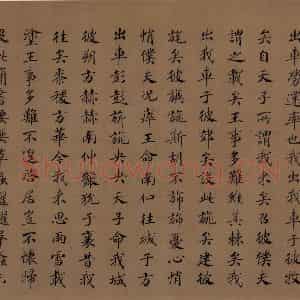 出車勞還率也我出我車于彼牧
矣自天子所謂我来矣召彼僕夫
謂之載矣王事多難維其棘矣我
出我車于彼郊矣設此旐矣建彼
旄矣彼旟旐斯胡不旆旆憂心悄
悄僕夫况瘁王命南仲往城于方
出車彭彭旂旐央央天子命我城
彼朔方赫赫南仲玁狁于襄昔我
往矣黍稷方華今我来思雨雪載
塗王事多難不遑啓居豈不懷歸
此簡書喓喓草蟲趯趯阜螽
Shufawang.cn